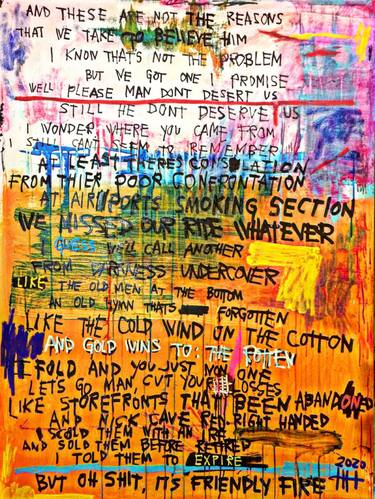 AND THESE ARE NOT THE REASONS
THAT WE TAKE TO BELIEVE HIM
I KNOW THAT'S NOT THE PROBLEM
BUT WE GOT ONE I PROMISE
WELL PLEASE MAN DONT DESERT US
STILL HE DONT DESERVE US
I WONDER WHERE YOU CAME FROM
I STILL CANT SEEM TO REMEMBER
AT LEAST THERES CONSOLATION
FROM THIER POOR CONFRONTATION
AT AIRPORTS SMOKING SECTION
WE MISSED OUR RIDE WHATEVER
GUESS WE'LL CALL ANOTHER
FROM DARKNESS UNDERCOVER
LIKE THE OLD MEN AT THE BOTTOM
AN OLD HYMN THATS FORGOTTEN
LIKE THE COLD WIND ON THE COTTON
AND GOLD WINS TO: THE ROTTEN
I FOLD AND YOU JUST WON ONE
LETS GO MAN, CUT YOUR LOSSES
LIKE STOREFRONTS THAT BEEN ABANDONED
AND NICK CAVE RED RIGHT HANDED
I SCOLD THEM WITH AN
AND SOLD THEM BEFORE
TOLD THEM TO EXPIRE
2020
BUT OH SHIT, IT'S FRIENDLY FIRE TH